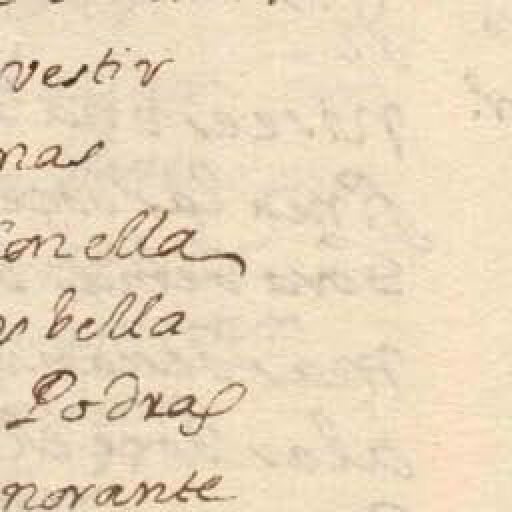 vestir
mas
con ella
es bella
Podras
norante